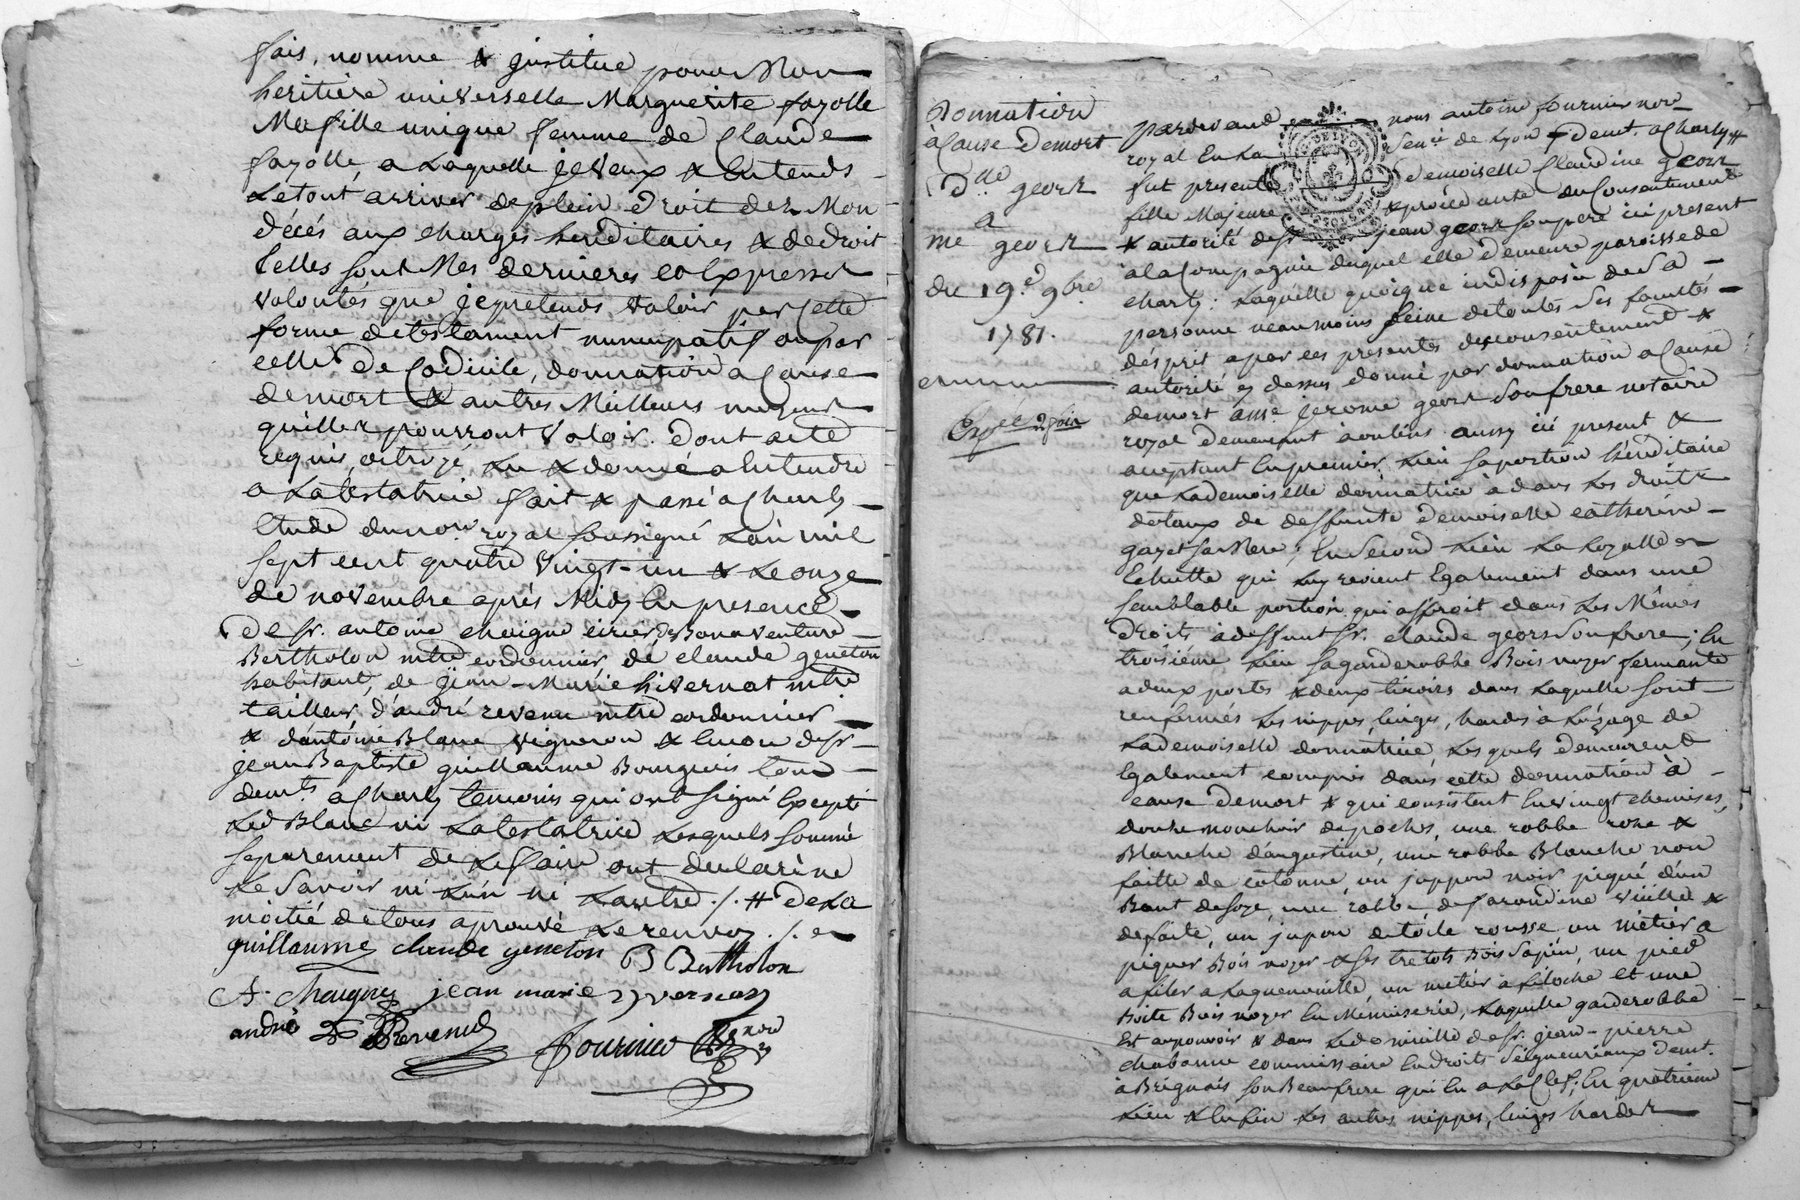 fais, nomme & institue pour Mon
heritiere universelle Marguerite fayolle
Ma fille unique femme de Claude
fayolle, a Laquelle je veux & Entends
Le tout arriver de plein droit dez Mon
décés aux charges hereditaires & de droit
telles sont Mes dernieres et Expresses
volontés que je pretends valoir par Cette
forme de testament nuncupatif ou par
celle de Codicile, donnation a Cause
de mort & autres Meilleurs moyens
qu'elles pourront valoir. dont acte
requis, octroyé Lu & donné a Entendre
a La testatrice fait & passé a Charly
Etude du nore. royal soussigné L'an mil
sept cent quatre vingt-un & Le onze
de novembre après Midy En presence
de sr. antoine chaigne cirier, de Bonaventure
Bertholon mtre cordonnier, de claude geneton
habitant, de jean-Marie hivernat mtre
tailleur, d'andré revenu mtre cordonnier
& d'antoine Blanc vigneron & Encor de sr
jean Baptiste guillaume Bourgeois tous
demts. a Charly temoins qui ont signé Excepté
Led Blanc ni La testatrice Lesquels sommé
separement de Le faire ont declaré ne
Le savoir ni L'un ni L'autre ./. # de La
moitié de tous aprouvé Le renvoy ./.
guillaume claude geneton B Bertholon
A. Chaigne jean marie yvernas
andré Revenu Fournier nore
Donnation
à Cause de mort
Dlle geors
a
me geors
du 19e 9bre
1781.
Expée 2 fois
pardevant nous antoine fournier nore
royal En La Sénée de Lyon demt. a Charly
fut presente demoiselle Claudine geors
fille Majeure & procedante du Consentement
& autorité de sr jean geors son pere ici present
a la Compagnie duquel elle demeure paroisse de
charly: Laquelle quoique indisposée de Sa
personne neanmoins saine de toutes Ses facultés
d'esprit a par ces presentes de consentement &
autorité cy dessus donné par donnation a Cause
de mort a me jerome geors Son frere notaire
royal demeurant à oulins aussy ici present &
acceptant En premier Lieu sa portion héréditaire
que La demoiselle donnatrice à dans Les droits
dotaux de deffunte demoiselle catherine
gayet sa Mere; En second Lieu La Loyalle
Echutte qui Luy revient Egalement dans une
semblable portion qui affèroit dans Les Mêmes
droits à deffunt sr. claude geors son frere; En
troisiéme Lieu sa garderobbe Bois noyer fermante
a deux portes & deux tiroirs dans Laquelle sont
renfermés Les nippes, linges, hardes à L'uzage de
La demoiselle donnatrice, Les quels demeurent
Egalement compris dans cette donnation à
cause de mort & qui consistent En vingt chemises,
douze mouchoir de poches, une robbe roze &
Blanche d'augustine, une robbe Blanche non
faitte de cotonne, un juppon noir piqué d'un
Bout de soye, une robbe de ferandine vieille &
defaite, un jupon de toile rousse un métier a
piquer Bois noyer & ses tretots Bois sapin, un pied
a filer a La quenouille, un métier a filoche et une
Boite Bois noyer En Menuiserie, Laquelle garderobbe
Est au pouvoir & dans Le domicille de sr. jean-pierre
chabanne commissaire En droits Seigneuriaux demt.
à Brignais son Beaufrere qui En a La Clef; En quatrieme
Lieu & Enfin Les autres nippes, linges hardes